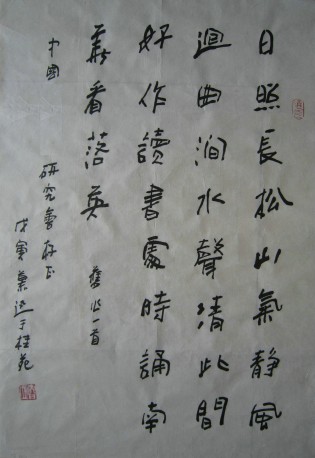 日照長松山氣靜風
迴曲澗水聲清此間
好作讀書處時誦南
華看落英 舊作一首
中國 研究會存正
戊寅 于桂苑